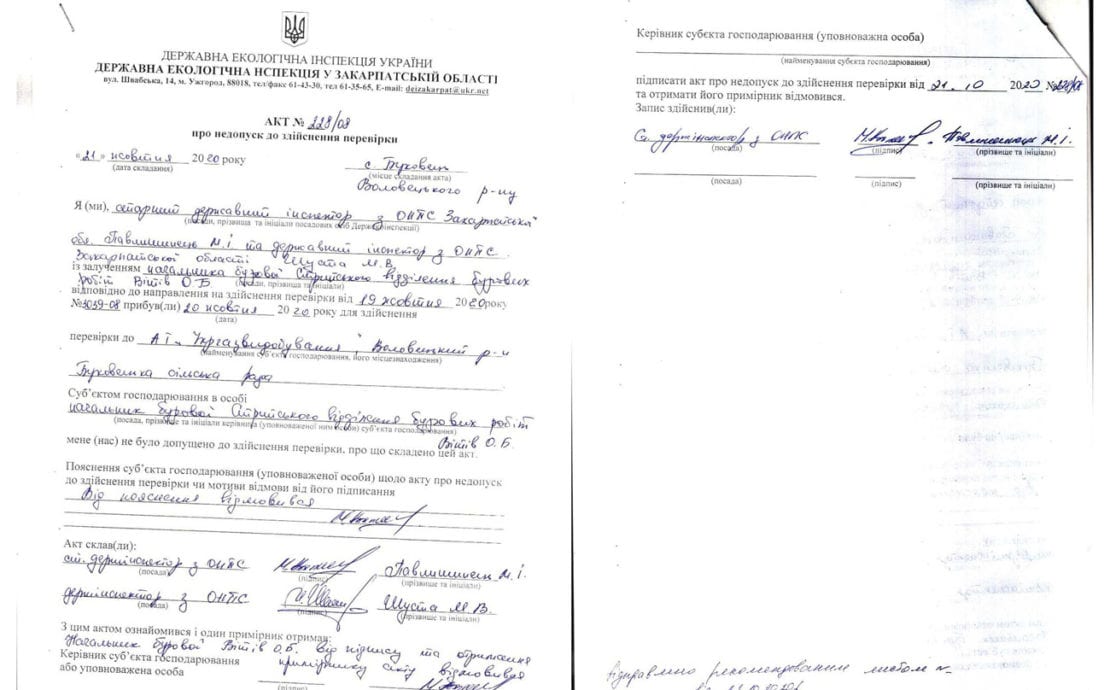 ДЕРЖАВНА ЕКОЛОГІЧНА ІНСПЕКЦІЯ УКРАЇНИ
ДЕРЖАВНА ЕКОЛОГІЧНА НСПЕКЦІЯ У ЗАКАРПАТСЬКІЙ ОБЛАСТІ
вул. Швабська, 14, м. Ужгород, 88018, тел/факс 61-43-30, тел 61-35-65, E-mail: deizakarpat@ukr.net
АКТ № 228/08
про недопуск до здійснення перевірки
«21» жовтня 2020 року с. Буковець
(дата складання) (місце складання акта)
Воловецького р-ну
Я (ми), старший державний інспектор з ОНПС Закарпатської
(посади, прізвища та ініціали посадових осіб Держекоінспекції)
обл. Павлишинець М.І. та державний інспектор з ОНПС
Закарпатської області Шуста М.В.
із залученням начальника бурової Стрийського відділення бурових
(посади, прізвища та ініціали)
робіт Вітів О.Б.
відповідно до направлення на здійснення перевірки від 19 жовтня 2020 року
№3039-08 прибув(ли) 20 жовтня 2020 року для здійснення
(дата)
перевірки до АТ „Укргазвидобування", Воловецький р-н
(найменування суб'єкта господарювання, його місцезнаходження)
сільська рада
Суб'єктом господарювання в особі
начальник бурової Стрийського відділення бурових робіт
(посада, прізвище та ініціали керівника (уповноваженої ним особи) суб'єкта господарювання)
Вітів О.Б.
мене (нас) не було допущено до здійснення перевірки, про що складено цей акт.
Пояснення суб'єкта господарювання (уповноваженої особи) щодо акту про недопуск
до здійснення перевірки чи мотиви відмови від його підписання
Від пояснення відмовився
Акт склав(ли):
ст. держінспектор з ОНПС Павлишинець М.І.
(посада) (підпис) (прізвище та ініціали)
держінспектор з ОНПС Шуста М.В.
(посада) (підпис) (прізвище та ініціали)
З цим актом ознайомився і один примірник отримав:
Начальник бурової Вітів О.Б. від підпису та отримання
Керівник суб'єкта господарювання примірнику акту відмовився
або уповноважена особа
(підпис)
Керівник субєкта господарювання (уповноважна особа)
(найменування субєкта господарювання)
підписати акт про недопуск до здійснення перевірки від 21.10 2020 №228/08
та отримати його примірник відмовився.
Запис здійснив(ли):
Ст. держінспектор з ОНПС Павлишинець М.І.
(посада) (підпис) (прізвище та ініціали)
(посада) (підпис) (прізвище та ініціали)
Відправлено рекомендованим листом